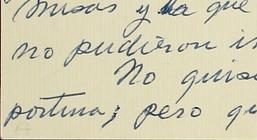 misas y la que
no pudieron i
No quis
portuna; pero q